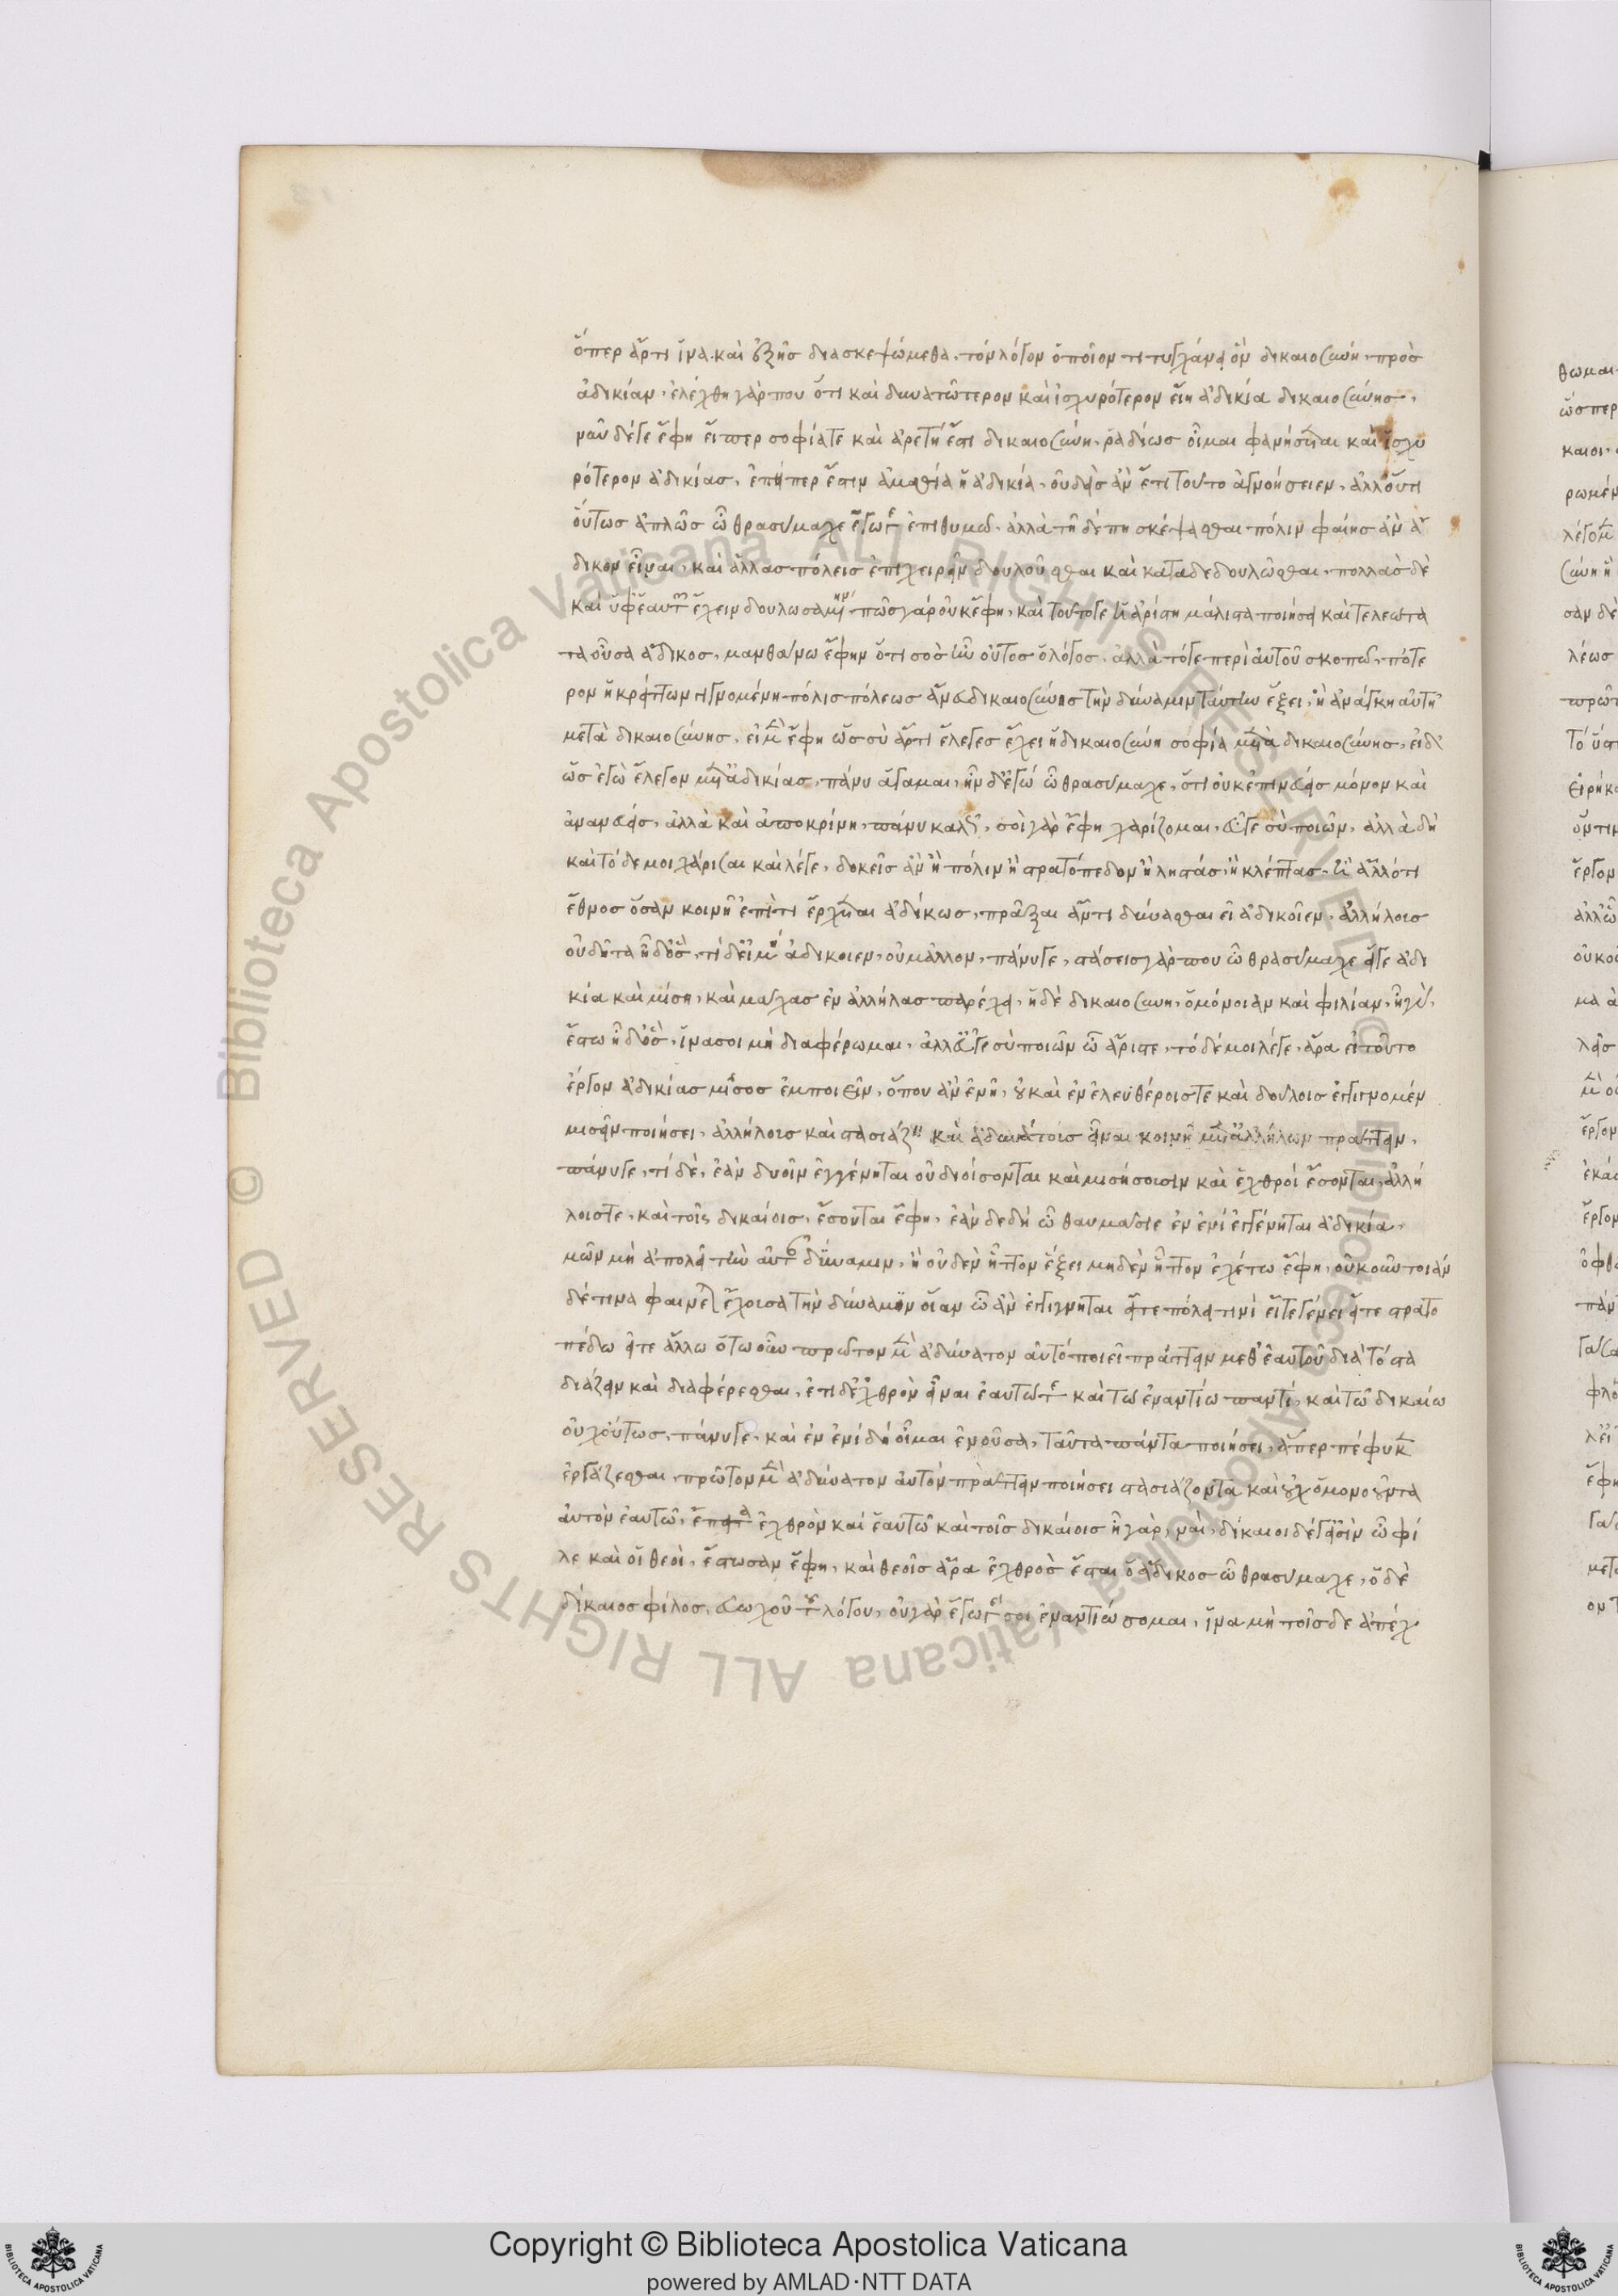 ὅπερ ἄρτι ἵνα καὶ ἑξῆς διασκεψώμεθα τὸν λόγον ὁποῖον τι τυγχάνει ὂν δικαιοσύνη πρὸς
ἀδικίαν, ἐλέχθη γάρ που ὅτι καὶ δυνατώτερον καὶ ἰσχυρότερον εἴη ἀδικία δικαιοσύνης,
νῦν δέ γε ἔφη εἴπερ σοφία τε καὶ ἀρετή ἐστι δικαιοσύνη, ῥαδίως οἶμαι φανήσεται καὶ ἰσχυ
ρότερον ἀδικίας, ἐπήπερ ἐστιν ἀμαθία ἡ ἀδικία, οὐδεὶς ἂν ἔτι τοῦτο ἀγνοήσειεν, ἀλλ' οὔτι
οὕτως ἁπλῶς ὦ θρασύμαχε ἔγωγε ἐπιθυμῶ, ἀλλὰ τῆδέ πη σκέψασθαι πόλιν φαίης ἂν ἄ
δικον εἶναι, καὶ ἄλλας πόλεις ἐπιχειρεῖν δουλοῦσθαι καὶ καταδεδουλῶσθαι, πολλὰς δὲ
καὶ ὑφ' ἑαυτῆ ἔχειν δουλωσαμένην πῶς γὰρ οὐκ ἔφη, καὶ τοῦτό γε ἡ ἀρίστη μάλιστα ποιήσει καὶ τελεωτά
τα οὖσα ἄδικος, μανθάνω ἔφην ὅτι σοσ ἦν οὗτος ὁ λόγος, ἀλλὰ τόδε περὶ αὐτοῦ σκοπῶ, πότε
ρον ἡ κρείττων γιγνομένη πόλις πόλεως ἄνευ δικαιοσύνης τὴν δύναμιν ταύτην ἕξει, ἢ ἀνάγκη αὐτῆ
μετὰ δικαιοσύνης, εἰ μὲν ἔφη ὡς σὺ ἄρτι ἔλεγες ἔχει ἡ δικαιοσύνη σοφία μετὰ δικαιοσύνης, εἰ δ'
ὡς ἐγὼ ἔλεγον μετὰ ἀδικίας, πάνυ ἄγαμαι, ἦν δ' ἐγώ ὦ θρασύμαχε, ὅτι οὐκ ἐπινεύεις μόνον καὶ
ἀνανεύεις, ἀλλὰ καὶ ἀποκρίνη, πάνυ καλῶς, σοὶ γὰρ ἔφη χαρίζομαι, εὖ γε σὺ ποιῶν, ἀλλὰ δὴ
καὶ τόδε μοι χάρισαι καὶ λέγε, δοκεῖς ἂν ἢ πόλιν ἢ στρατόπεδον ἢ ληστάς, ἢ κλέπτας, ἢ ἄλλό τι
ἔθνος ὅσαν κοινῆ ἐπί τι ἔρχεται ἀδίκως, πρᾶξαι ἄν τι δύνασθαι εἰ ἀδικοῖεν, ἀλλήλοις
οὐ δῆτα ἦ δ' ὅς, τί δ' εἰ μὴ ἀδικοιεν, οὐ μᾶλλον, πάνυ γε, στάσεις γάρ που ὦ θρασύμαχε ἥ γε ἀδι
κία καὶ μίση, καὶ μάχας ἐν ἀλλήλας παρέχει, ἡ δὲ δικαιοσύνη, ὁμόνοιαν καὶ φιλίαν, ἦ γὰρ,
ἔστω ἦ δ' ὅς, ἵνα σοι μὴ διαφέρωμαι, ἀλλ' εὖ γε σὺ ποιῶν ὦ ἄριστε, τόδε μοι λέγε, ἆρα εἰ τοῦτο
ἔργον ἀδικίας μῖσος ἐμποιεῖν, ὅπου ἂν ἐνῆ, οὐ καὶ ἐν ἐλευθέροις τε καὶ δούλοις ἐγγιγνομέν
μισεῖν ποιήσει, ἀλλήλους καὶ στασιάζειν καὶ ἀδυνάτους εἶναι κοινῆ μετὰ ἀλλήλων πράττειν,
πάνυ γε, τί δὲ, ἐὰν δυοῖν ἐγγένηται οὐ διοίσονται καὶ μισήσουσιν καὶ ἐχθροί ἔσονται, ἀλλή
λοις τε, καὶ τοῖς δικαίοις, ἔσονται ἔφη, ἐὰν δὲ δὴ ὦ θαυμάσιε ἐν ἑνί ἐγγένηται ἀδικία,
μῶν μὴ ἀπολεῖ τὴν αὑτῆς δύναμιν, ἢ οὐδὲν ἧττον ἕξει μηδὲν ἧττον ἐχέτω ἔφη, οὐκοῦν τοιάν
δέ τινα φαίνεται ἔχουσα τὴν δύναμιν οἵαν ὧ ἂν ἐγγίγνηται εἴτε πόλει τινὶ εἴτε γένει εἴτε στρατο
πέδω εἴτε ἄλλω ὅτωοῦν πρῶτον μὲν ἀδύνατον αὐτό ποιεῖ πράττειν μεθ' ἑαυτοῦ διὰ τό στα
σιάζειν καὶ διαφέρεσθαι, ἔτι δ' ἐχθρὸν εἶναι ἑαυτῶ τε καὶ τῶ ἐναντίω παντί, καὶ τῶ δικαίω
οὐχ οὕτως, πάνυ γε, καὶ ἐν ἑνί δή οἶμαι ἐνοῦσα, ταῦτα πάντα ποιήσει, ἅπερ πέφυκεν
ἐργάζεσθαι, πρῶτον μὲν ἀδύνατον αὐτὸν πράττειν ποιήσει στασιάζοντα καὶ οὐχ ὁμονοοῦντα
αὐτὸν ἑαυτῶ, ἔπειτα ἐχθρὸν καὶ ἑαυτῶ καὶ τοῖς δικαίοις ἦ γὰρ, ναὶ, δίκαιοι δέ γ' εἰσὶν ὦ φί
λε καὶ οἱ θεοὶ, ἔστωσαν ἔφη, καὶ θεοῖς ἄρα ἐχθρὸς ἔσται ὁ ἄδικος ὦ θρασύμαχε, ὁ δὲ
δίκαιος φίλος, εὐωχοῦ τοῦ λόγου, οὐ γὰρ ἔγωγέ σοι ἐναντιώσομαι, ἵνα μὴ τοῖσδε ἀπέχ
Copyright © Biblioteca Apostolica Vaticana
powered by AMLAD·NTT DATA